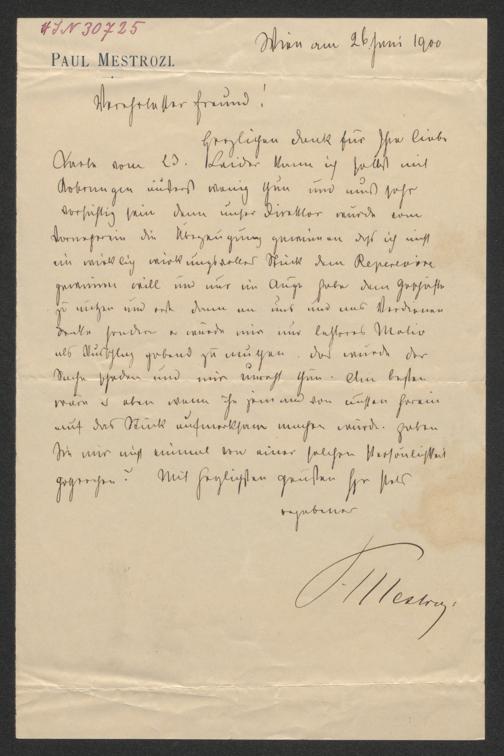 HJN 30725
Wien am 26 Juni 1900
PAUL MESTROZI.
Verehrtester Freund!
Herzlichen Dank für Ihre liebe
Karte vom 23. Leider kann ich selbst mit
äußerst wenig thun und muß sehr
vorsichtig sein denn unser Direktor würde vom
die Überzeugung gewinnen daß ich nicht
ein wirklich wirkungsvolles Stück dem Repertoire
gewinnen will und nur im Auge habe dem Geschäfte
zu nützen und erst dann an uns und ans Verdienen
denke sondern er würde mir nur letzteres Motiv
als Ausschlag gebend zu muthen. das würde der
Sache schaden und mir Unrecht thun. Am besten
wäre es eben wenn ihn jemand von außen herein
auf das Stück aufmerksam machen würde. Haben
Sie mir nicht einmal von einer solchen Persönlichkeit
gesprochen? Mit herzlichsten Grüßen Ihr stets
ergebener
P. Mestrozi